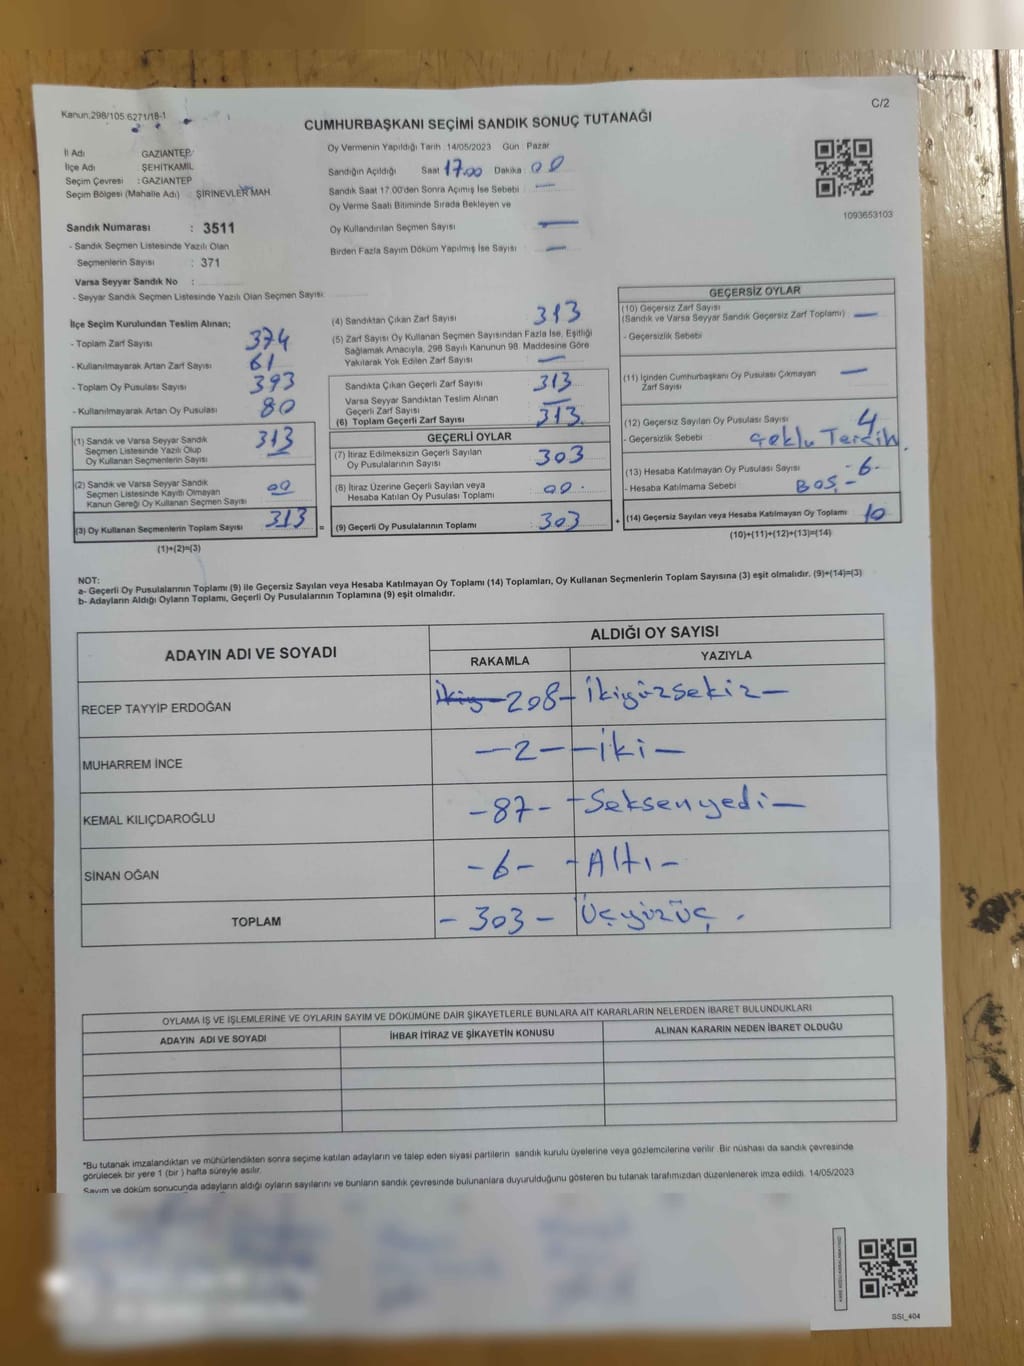 Kanun:298/105.6271/18-1
C/2
CUMHURBAŞKANI SEÇİMİ SANDIK SONUÇ TUTANAĞI
İl Adı GAZIANTEP
İlçe Adı ŞEHİTKAMİL
Seçim Çevresi : GAZIANTEP
Seçim Bölgesi (Mahalle Adı) ŞİRİNEVLER MAH
Oy Vermenin Yapıldığı Tarih :14/05/2023 Gün : Pazar
Sandığın Açıldığı Saat 17.00 Dakika 00
Sandık Saat 17.00'den Sonra Açımış İse Sebebi —
Oy Verme Saati Bitiminde Sırada Bekleyen ve
Oy Kullandırılan Seçmen Sayısı —
Birden Fazla Sayım Döküm Yapılmış İse Sayısı —
1093653103
Sandık Numarası : 3511
- Sandık Seçmen Listesinde Yazılı Olan
Seçmenlerin Sayısı : 371
Varsa Seyyar Sandık No :
- Seyyar Sandık Seçmen Listesinde Yazılı Olan Seçmen Sayısı:
İlçe Seçim Kurulundan Teslim Alınan;
- Toplam Zarf Sayısı 374
- Kullanılmayarak Artan Zarf Sayısı 61
- Toplam Oy Pusulası Sayısı 393
- Kullanılmayarak Artan Oy Pusulası 80
(1) Sandık ve Varsa Seyyar Sandık
Seçmen Listesinde Yazılı Olup
Oy Kullanan Seçmenlerin Sayısı 313
(2) Sandık ve Varsa Seyyar Sandık
Seçmen Listesinde Kayıtlı Olmayan
Kanun Gereği Oy Kullanan Seçmen Sayısı 00
(3) Oy Kullanan Seçmenlerin Toplam Sayısı 313 =
(1)+(2)=(3)
(4) Sandıktan Çıkan Zarf Sayısı 313
(5) Zarf Sayısı Oy Kullanan Seçmen Sayısından Fazla İse, Eşitliği
Sağlamak Amacıyla, 298 Sayılı Kanunun 98. Maddesine Göre
Yakılarak Yok Edilen Zarf Sayısı —
Sandıkta Çıkan Geçerli Zarf Sayısı 313
Varsa Seyyar Sandıktan Teslim Alınan
Geçerli Zarf Sayısı —
(6) Toplam Geçerli Zarf Sayısı 313
GEÇERLİ OYLAR
(7) İtiraz Edilmeksizin Geçerli Sayılan
Oy Pusulalarının Sayısı 303
(8) İtiraz Üzerine Geçerli Sayılan veya
Hesaba Katılan Oy Pusulası Toplamı 00
(9) Geçerli Oy Pusulalarının Toplamı 303 +
GEÇERSİZ OYLAR
(10) Geçersiz Zarf Sayısı
(Sandık ve Varsa Seyyar Sandık Geçersiz Zarf Toplamı) —
- Geçersizlik Sebebi
(11) İçinden Cumhurbaşkanı Oy Pusulası Çıkmayan
Zarf Sayısı —
(12) Geçersiz Sayılan Oy Pusulası Sayısı 4
- Geçersizlik Sebebi Çoklu Tercih.
(13) Hesaba Katılmayan Oy Pusulası Sayısı -6-
- Hesaba Katılmama Sebebi BOŞ-
(14) Geçersiz Sayılan veya Hesaba Katılmayan Oy Toplamı 10
(10)+(11)+(12)+(13)=(14)
NOT:
a- Geçerli Oy Pusulalarının Toplamı (9) ile Geçersiz Sayılan veya Hesaba Katılmayan Oy Toplamı (14) Toplamları, Oy Kullanan Seçmenlerin Toplam Sayısına (3) eşit olmalıdır. (9)+(14)=(3)
b- Adayların Aldığı Oyların Toplamı, Geçerli Oy Pusulalarının Toplamına (9) eşit olmalıdır.
ADAYIN ADI VE SOYADI ALDIĞI OY SAYISI
RAKAMLA YAZIYLA
RECEP TAYYİP ERDOĞAN 208- İkiyüzsekiz-
MUHARREM İNCE -2- -iki-
KEMAL KILIÇDAROĞLU -87- -Seksenyedi-
SİNAN OĞAN -6- -Altı-
TOPLAM -303- Üçyüzüç.
OYLAMA İŞ VE İŞLEMLERİNE VE OYLARIN SAYIM VE DÖKÜMÜNE DAİR ŞİKAYETLERLE BUNLARA AİT KARARLARIN NELERDEN İBARET BULUNDUKLARI
ADAYIN ADI VE SOYADI İHBAR İTİRAZ VE ŞİKAYETİN KONUSU ALINAN KARARIN NEDEN İBARET OLDUĞU
*Bu tutanak imzalandıktan ve mühürlendikten sonra seçime katılan adayların ve talep eden siyasi partilerin sandık kurulu üyelerine veya gözlemcilerine verilir. Bir nüshası da sandık çevresinde
görülecek bir yere 1 (bir ) hafta süreyle asılır.
Sayım ve döküm sonucunda adayların aldığı oyların sayılarını ve bunların sandık çevresinde bulunanlara duyurulduğunu gösteren bu tutanak tarafımızdan düzenlenerek imza edildi. 14/05/2023
SSI_404